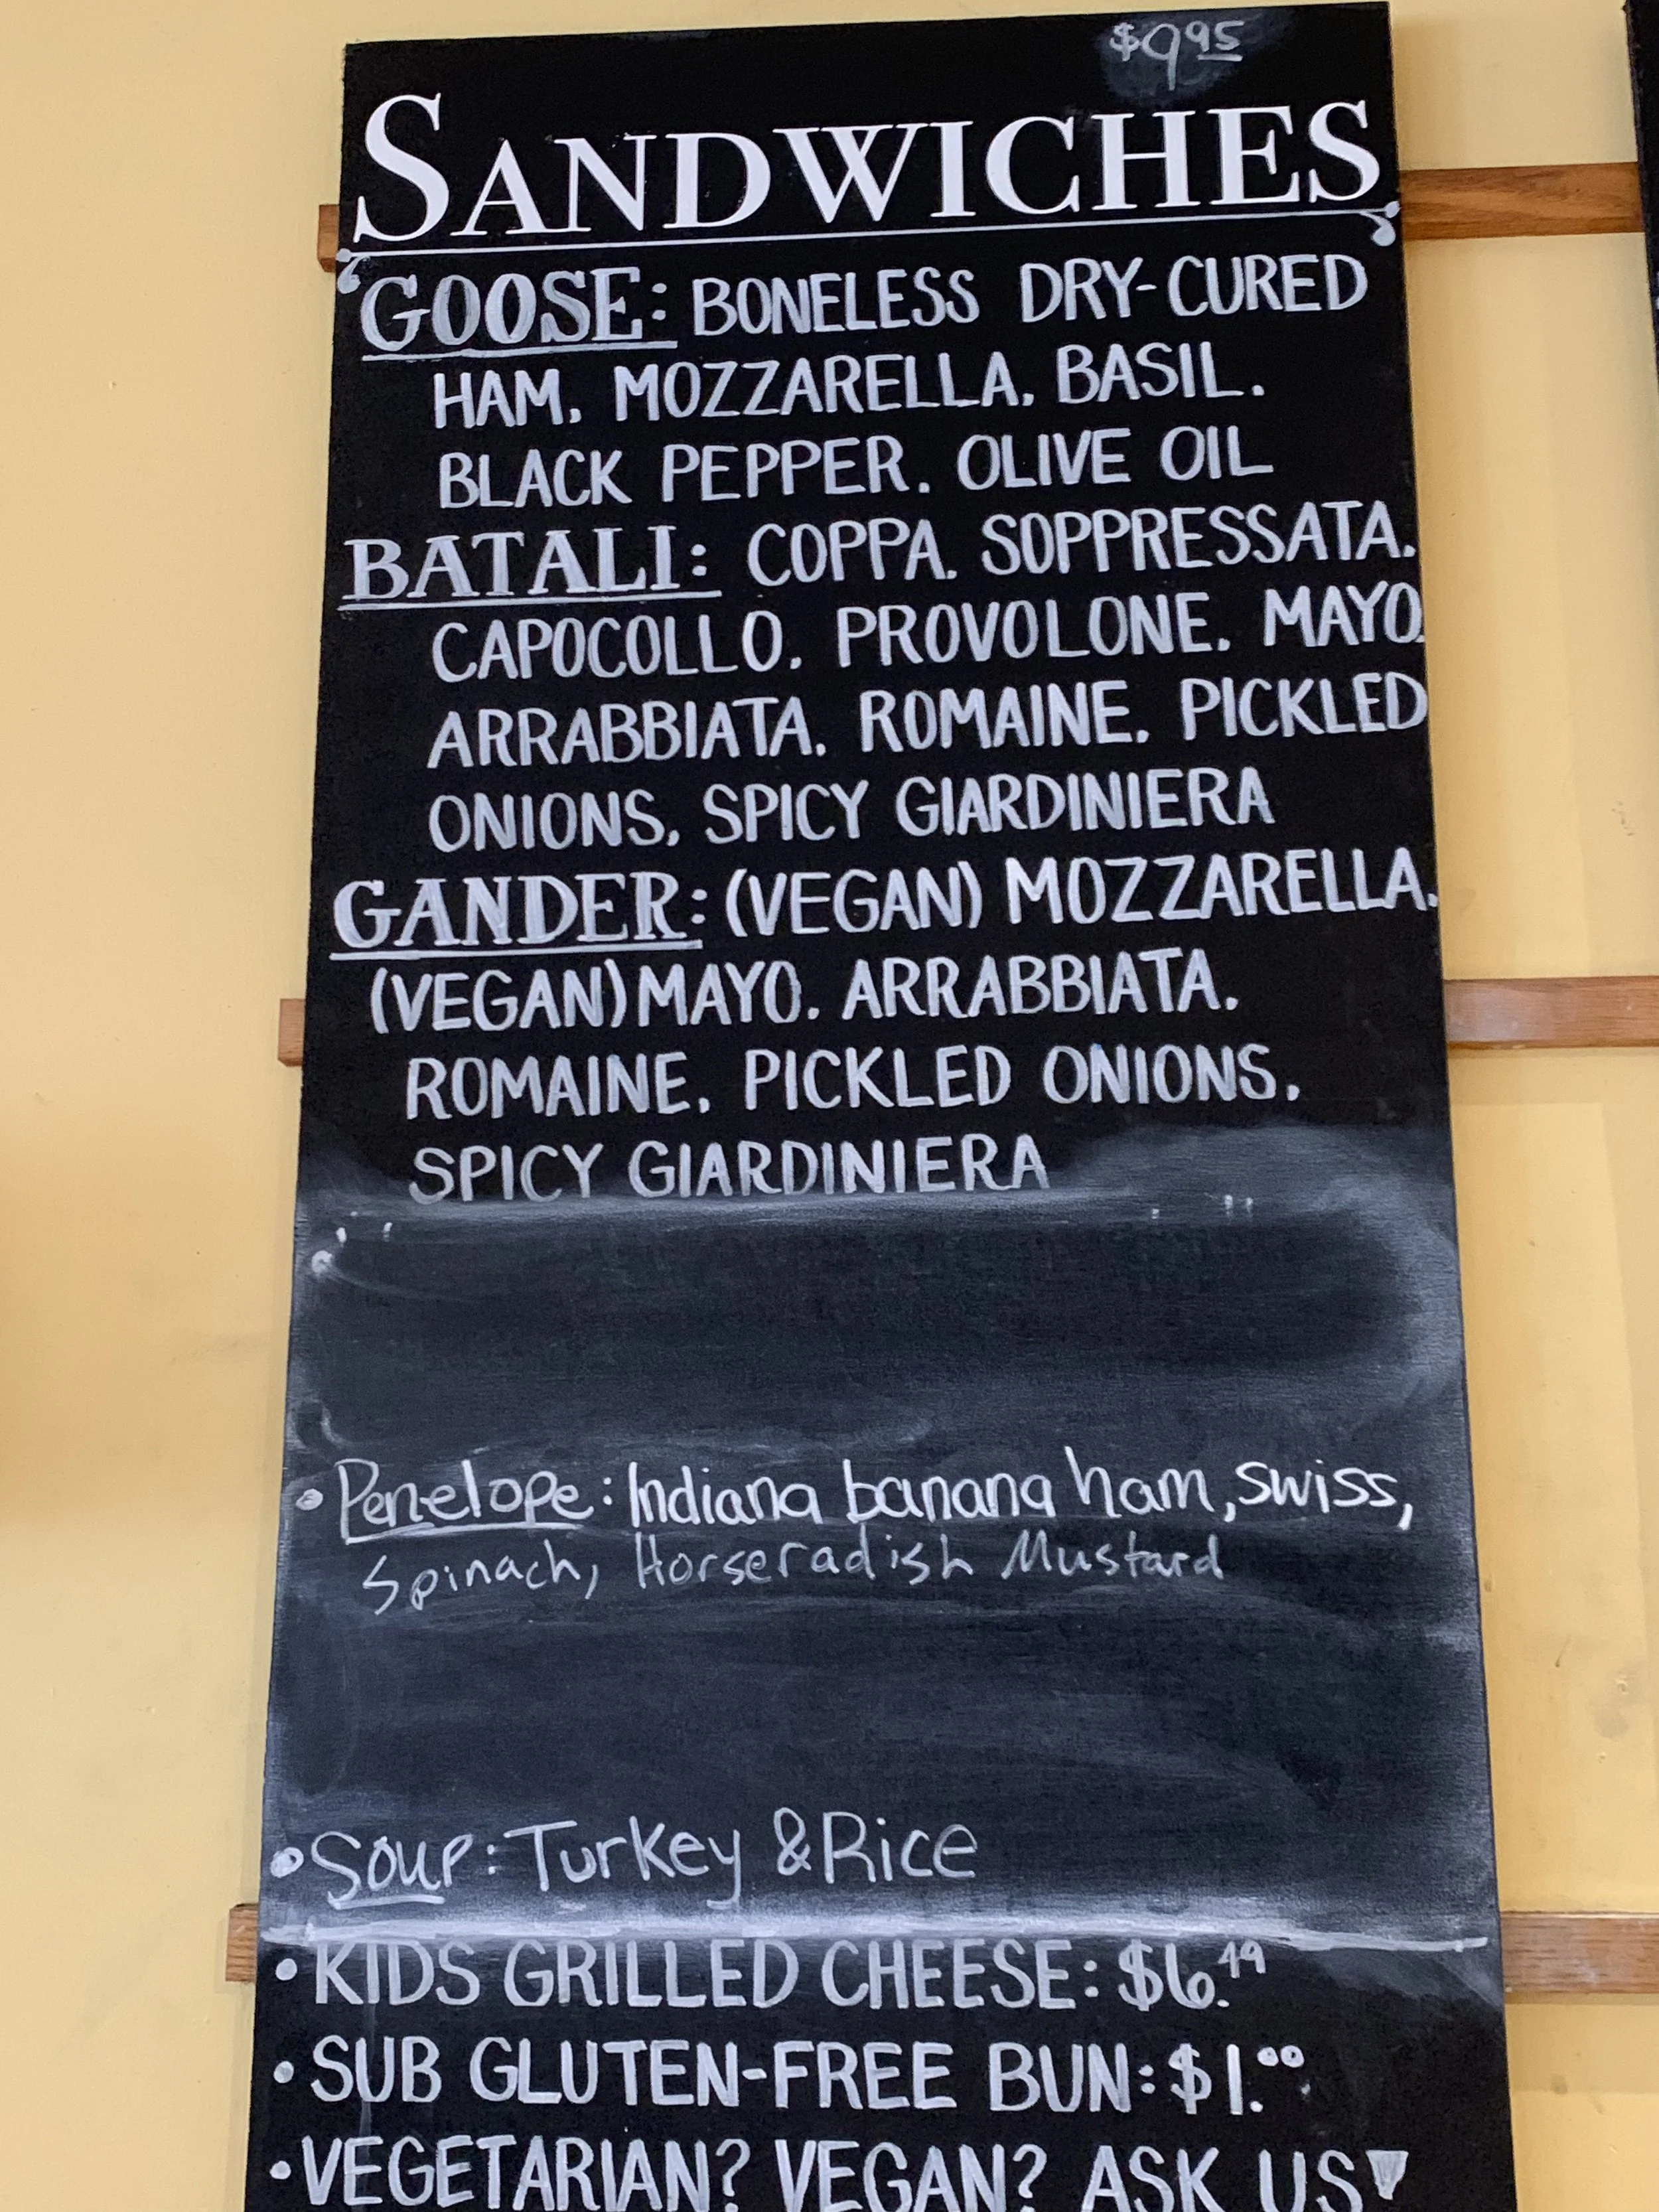 $9.95
SANDWICHES
GOOSE: BONELESS DRY-CURED
HAM. MOZZARELLA. BASIL.
BLACK PEPPER. OLIVE OIL
BATALI: COPPA. SOPPRESSATA.
CAPOCOLLO. PROVOLONE. MAYO.
ARRABBIATA. ROMAINE. PICKLED
ONIONS. SPICY GIARDINIERA
GANDER: (VEGAN) MOZZARELLA.
(VEGAN) MAYO. ARRABBIATA.
ROMAINE. PICKLED ONIONS.
SPICY GIARDINIERA
• Penelope: Indiana banana ham, swiss,
Spinach, Horseradish Mustard
• Soup: Turkey & Rice
• KIDS GRILLED CHEESE: $6.49
• SUB GLUTEN-FREE BUN: $1.00
• VEGETARIAN? VEGAN? ASK US